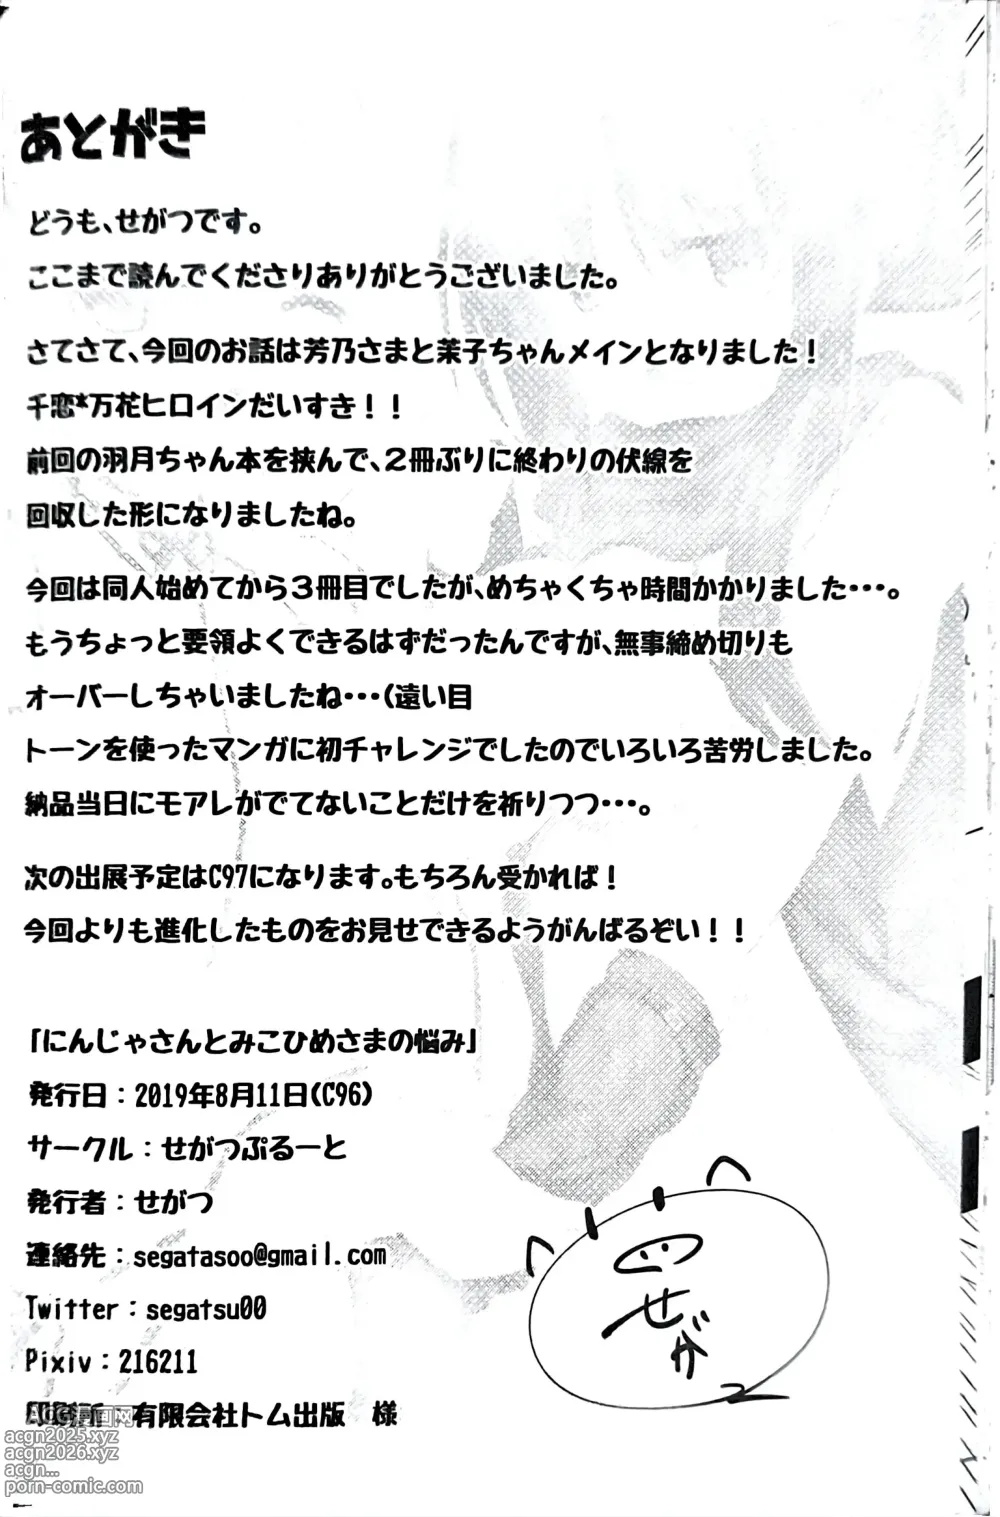 あとがき
どうも、せがつです。
ここまで読んでくださりありがとうございました。
さてさて、今回のお話は芳乃さまと茉子ちゃんメインとなりました！
千恋*万花ヒロインだいすき！！
前回の羽月ちゃん本を挟んで、2冊ぶりに終わりの伏線を
回収した形になりましたね。
今回は同人始めてから3冊目でしたが、めちゃくちゃ時間かかりました・・・。
もうちょっと要領よくできるはずだったんですが、無事締め切りも
オーバーしちゃいましたね・・・(遠い目
トーンを使ったマンガに初チャレンジでしたのでいろいろ苦労しました。
納品当日にモアレがでてないことだけを祈りつつ・・・。
次の出展予定はC97になります。もちろん受かれば！
今回よりも進化したものをお見せできるようがんばるぞい！！
「にんじゃさんとみこひめさまの悩み」
発行日：2019年8月11日(C96)
サークル：せがつぷるーと
発行者：せがつ
連絡先：segatasoo@gmail.com
Twitter：segatsu00
Pixiv：216211
印刷所　有限会社トム出版　様
せがつ
acgn2025.xyz
acgn2026.xyz
acgn...
porn-comic.com